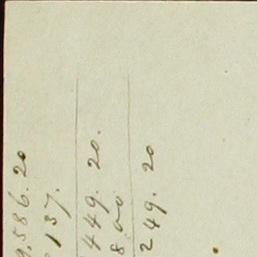 9.586.20
137.
449. 20.
8 00
249. 20